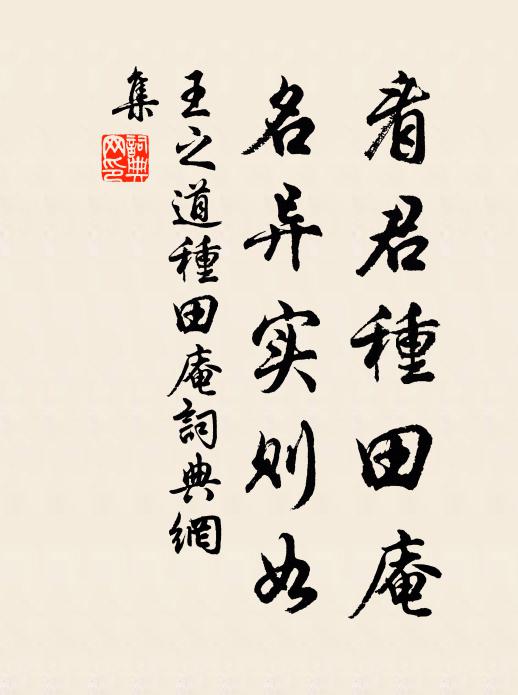 看君種田庵
名异实则如
王之道種田庵詞典網
集
詞典網印